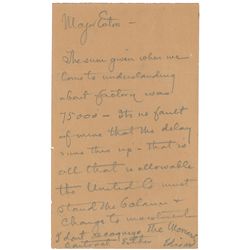 Major Eaton —
The sum given when we
come to understanding
about factory was
75000 — Its no fault
of mine that the delay
runs this up — That is
all that is allowable
the United Co must
stand the balance &
change to investment
I dont recognize The Morten
contract — Edison